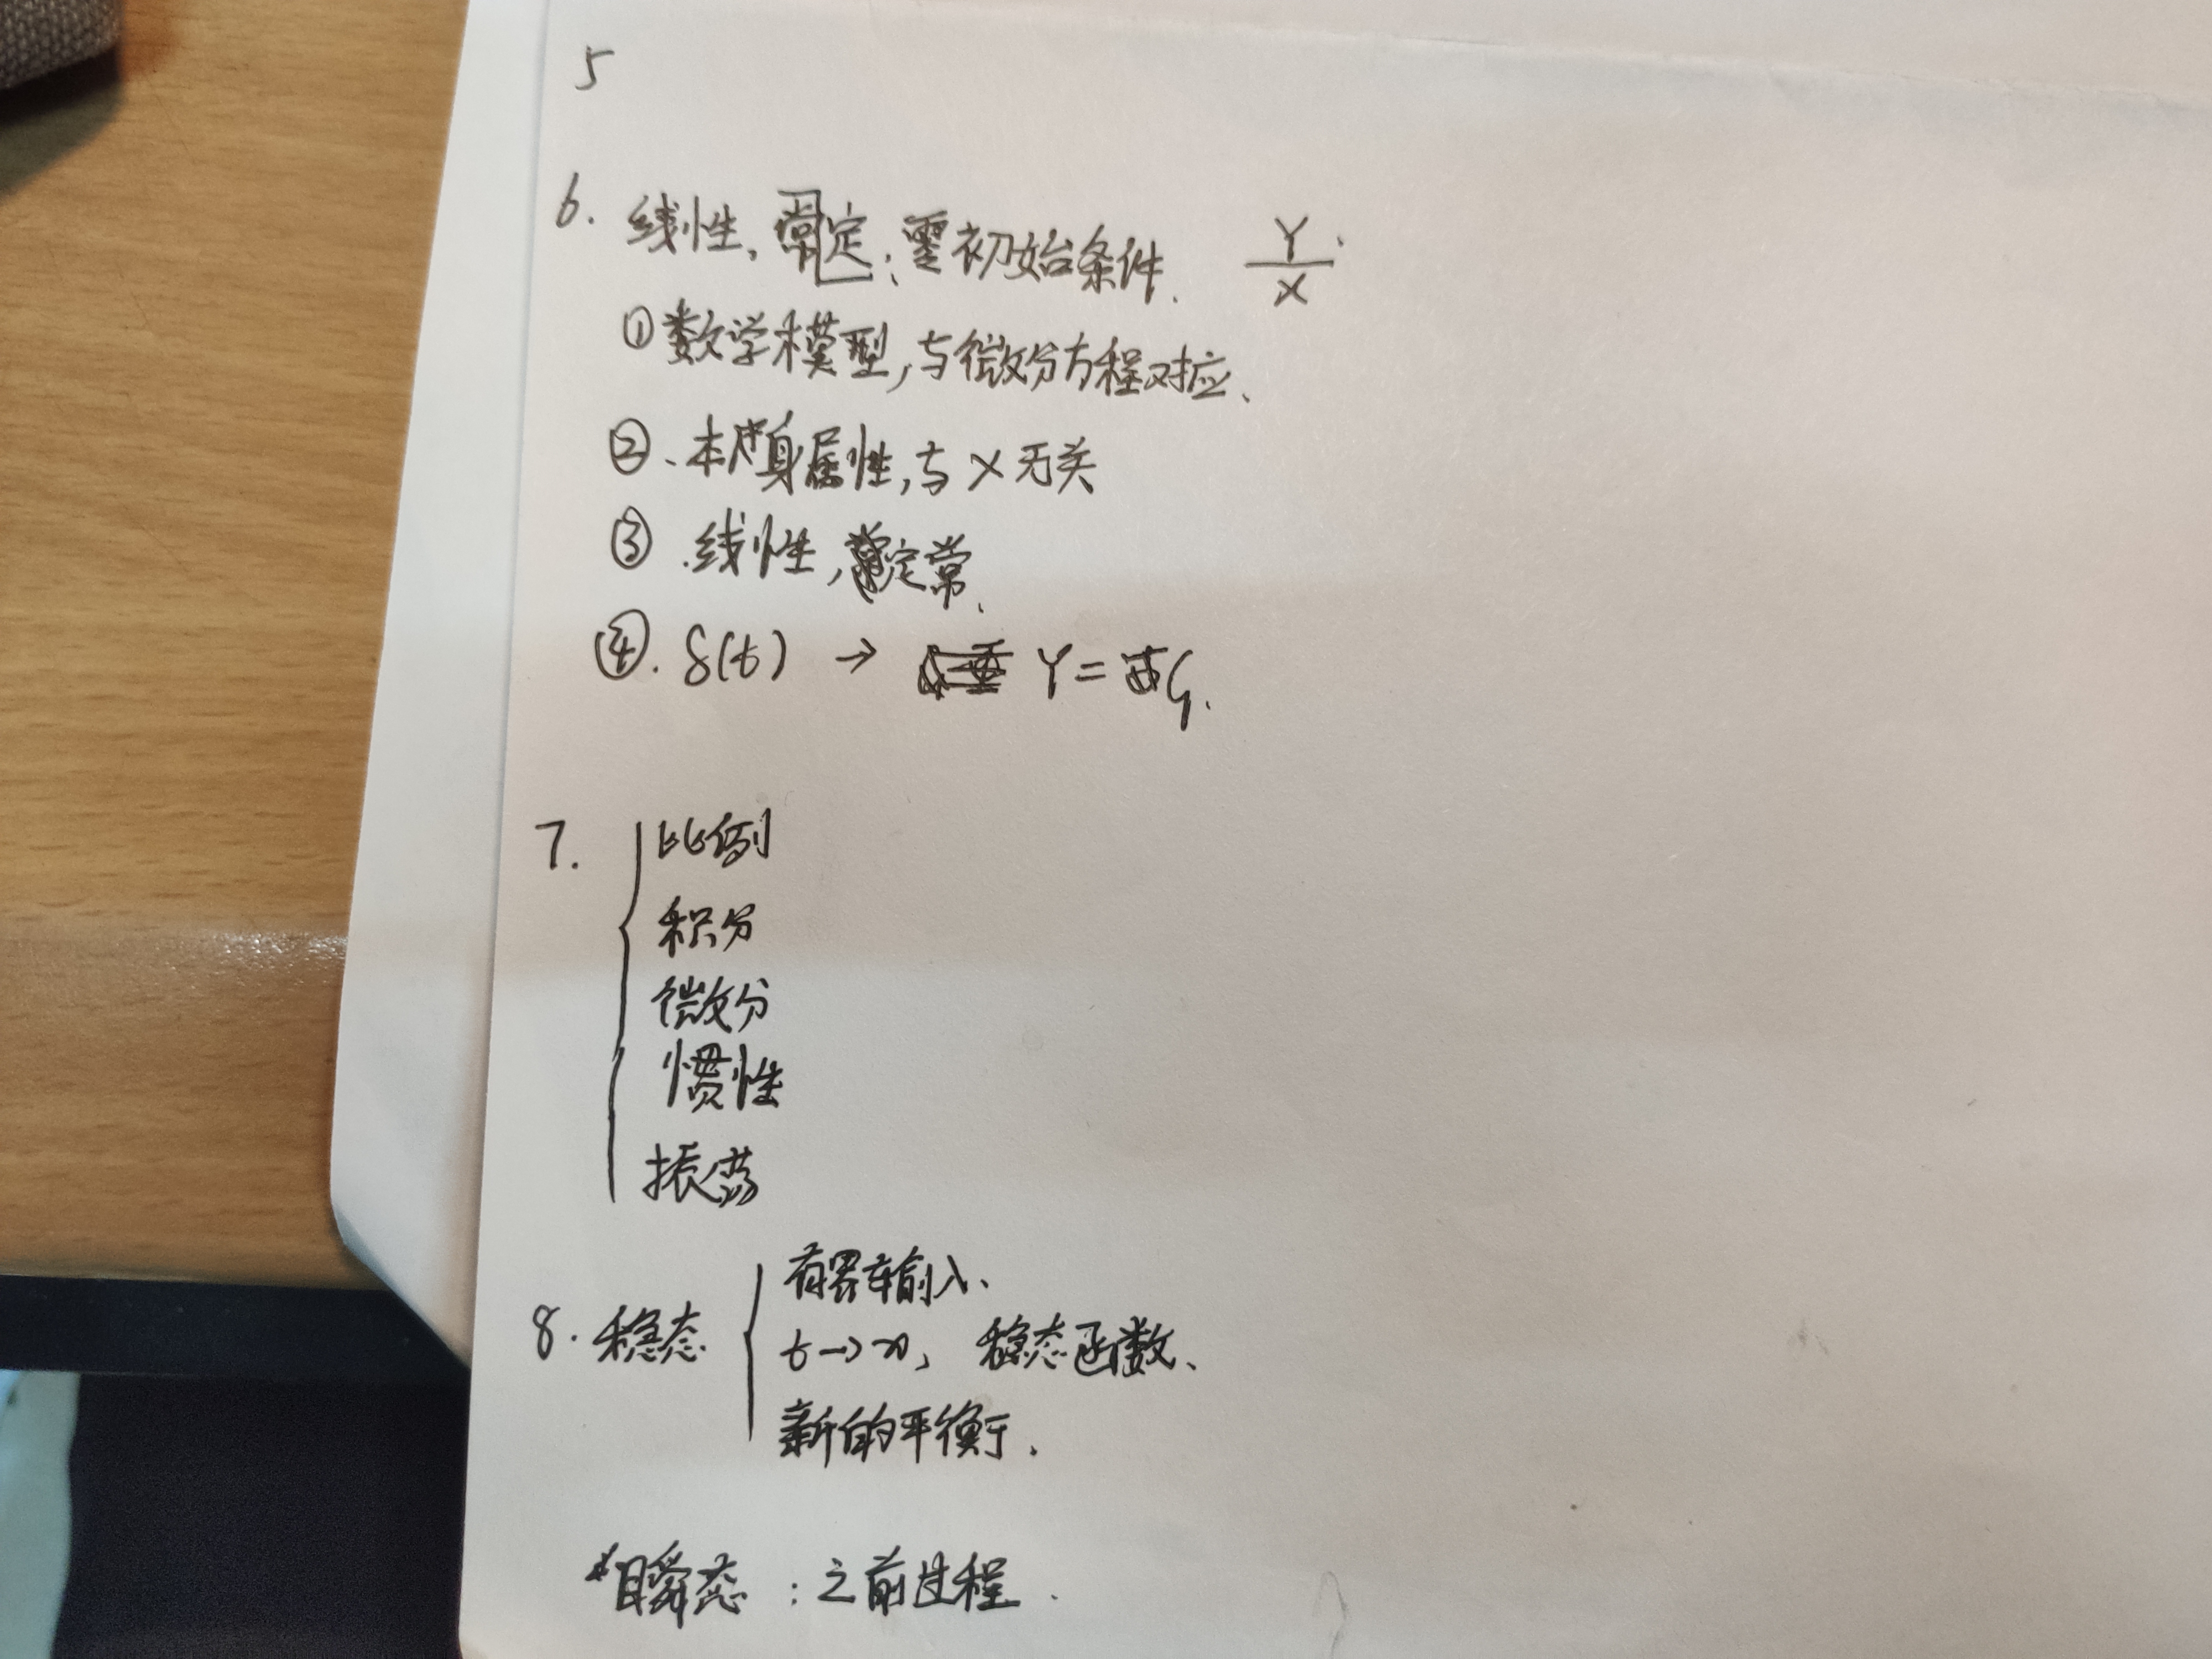 5
6. 线性, 常定; 零初始条件. Y/X.
① 数学模型, 与微分方程对应、
②. 本身属性, 与 X 无关
③. 线性, 定常.
④. δ(t) →  Y =
7. { 比例
积分
微分
惯性
振荡
8. 稳态 { 有界输入、
t→∞, 稳态函数、
新的平衡.
*暂态 : 之前过程.